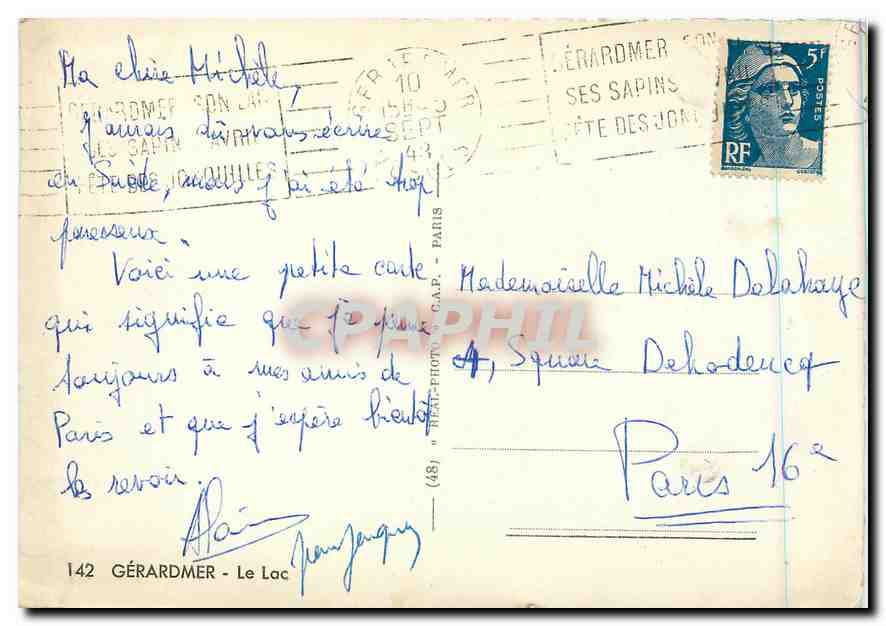 Ma chère Michèle,
J'aurais dû vous écrire
en Suède, mais j'ai été trop
paresseux.
Voici une petite carte
qui signifie que je pense
toujours à mes amis de
Paris et que j'espère bientôt
les revoir.
Alain
Jean Jacques
142 GÉRARDMER - Le Lac
(48) " RÉAL-PHOTO " C.A.P. - PARIS
GÉRARDMER SON LAC
SES SAPINS AVRIL
FÊTE DES JONQUILLES
GERARDMER
10
15H30
SEPT
48
GÉRARDMER SON
SES SAPINS
FÊTE DES JON
5F
POSTES
RF
Mademoiselle Michèle Delahaye
4, Square Dehodencq
Paris 16e
CPAPHIL